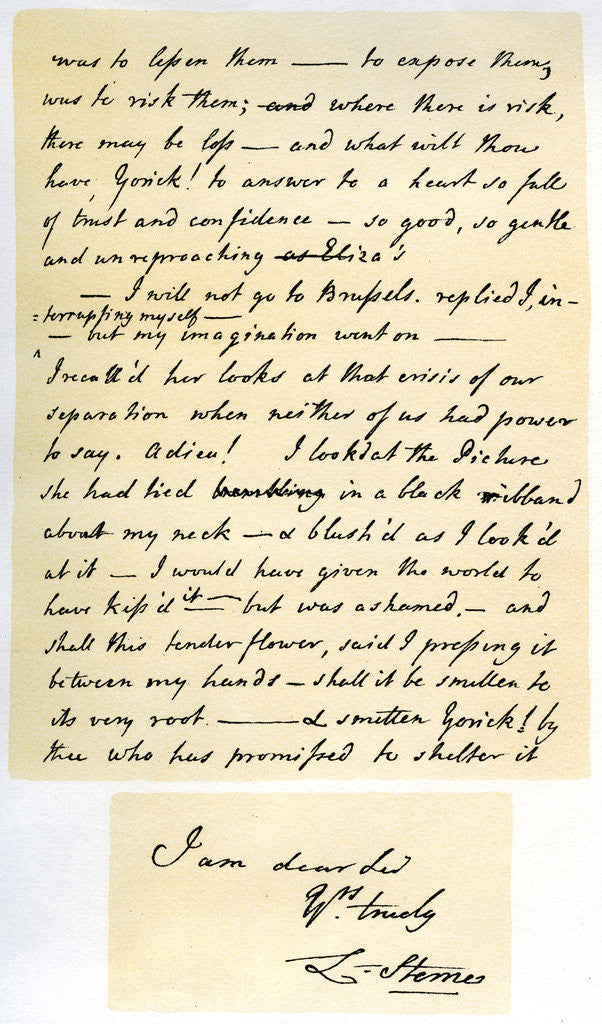 was to lessen them —— to expose them,
was to risk them; and where there is risk,
there may be loss — and what wilt thou
have, Yorick! to answer to a heart so full
of trust and confidence — so good, so gentle
and unreproaching as Eliza's
— I will not go to Brussels. replied I, in-
=terrupting myself —
— but my imagination went on ——
I recall'd her looks at that crisis of our
separation when neither of us had power
to say. Adieu! I look'd at the Picture
she had tied trembling in a black ribband
about my neck — & blush'd as I look'd
at it — I would have given the world to
have kiss'd it — but was ashamed. — and
shall this tender flower, said I pressing it
between my hands — shall it be smitten to
its very root. —— & smitten Yorick! by
thee who has promissed to shelter it
I am dear Sir
Yrs. truely
L- Sterne